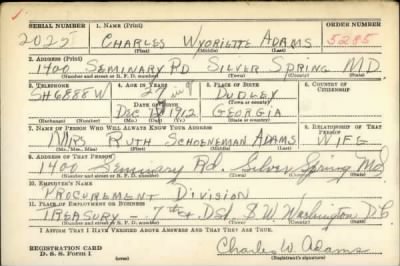 SERIAL NUMBER 1. NAME (Print) ORDER NUMBER
2025 CHARLES WYORIETTE ADAMS 5285
(First) (Middle) (Last)
2. ADDRESS (Print)
1400 SEMINARY RD SILVER SPRING MD.
(Number and street or R. F. D. number) (Town) (County) (State)
3. TELEPHONE 4. AGE IN YEARS 5. PLACE OF BIRTH 6. COUNTRY OF CITIZENSHIP
SH6888W 27 DUDLEY
DATE OF BIRTH (Town or county)
DEC 1912 GEORGIA
(Exchange) (Number) (Mo.) (Day) (Yr.) (State or country)
7. NAME OF PERSON WHO WILL ALWAYS KNOW YOUR ADDRESS 8. RELATIONSHIP OF THAT PERSON
MRS RUTH SCHOENEMAN ADAMS WIFE
(Mr., Mrs., Miss) (First) (Middle) (Last)
9. ADDRESS OF THAT PERSON
1400 Seminary Rd. Silver Spring Md
(Number and street or R. F. D. number) (Town) (County) (State)
10. EMPLOYER'S NAME
PROCUREMENT DIVISION
11. PLACE OF EMPLOYMENT OR BUSINESS
TREASURY - 7th & D St. S.W. Washington D.C
(Number and street or R. F. D. number) (Town) (County) (State)
I AFFIRM THAT I HAVE VERIFIED ABOVE ANSWERS AND THAT THEY ARE TRUE.
REGISTRATION CARD
D. S. S. Form 1 (over) Charles W. Adams
(Registrant's signature)